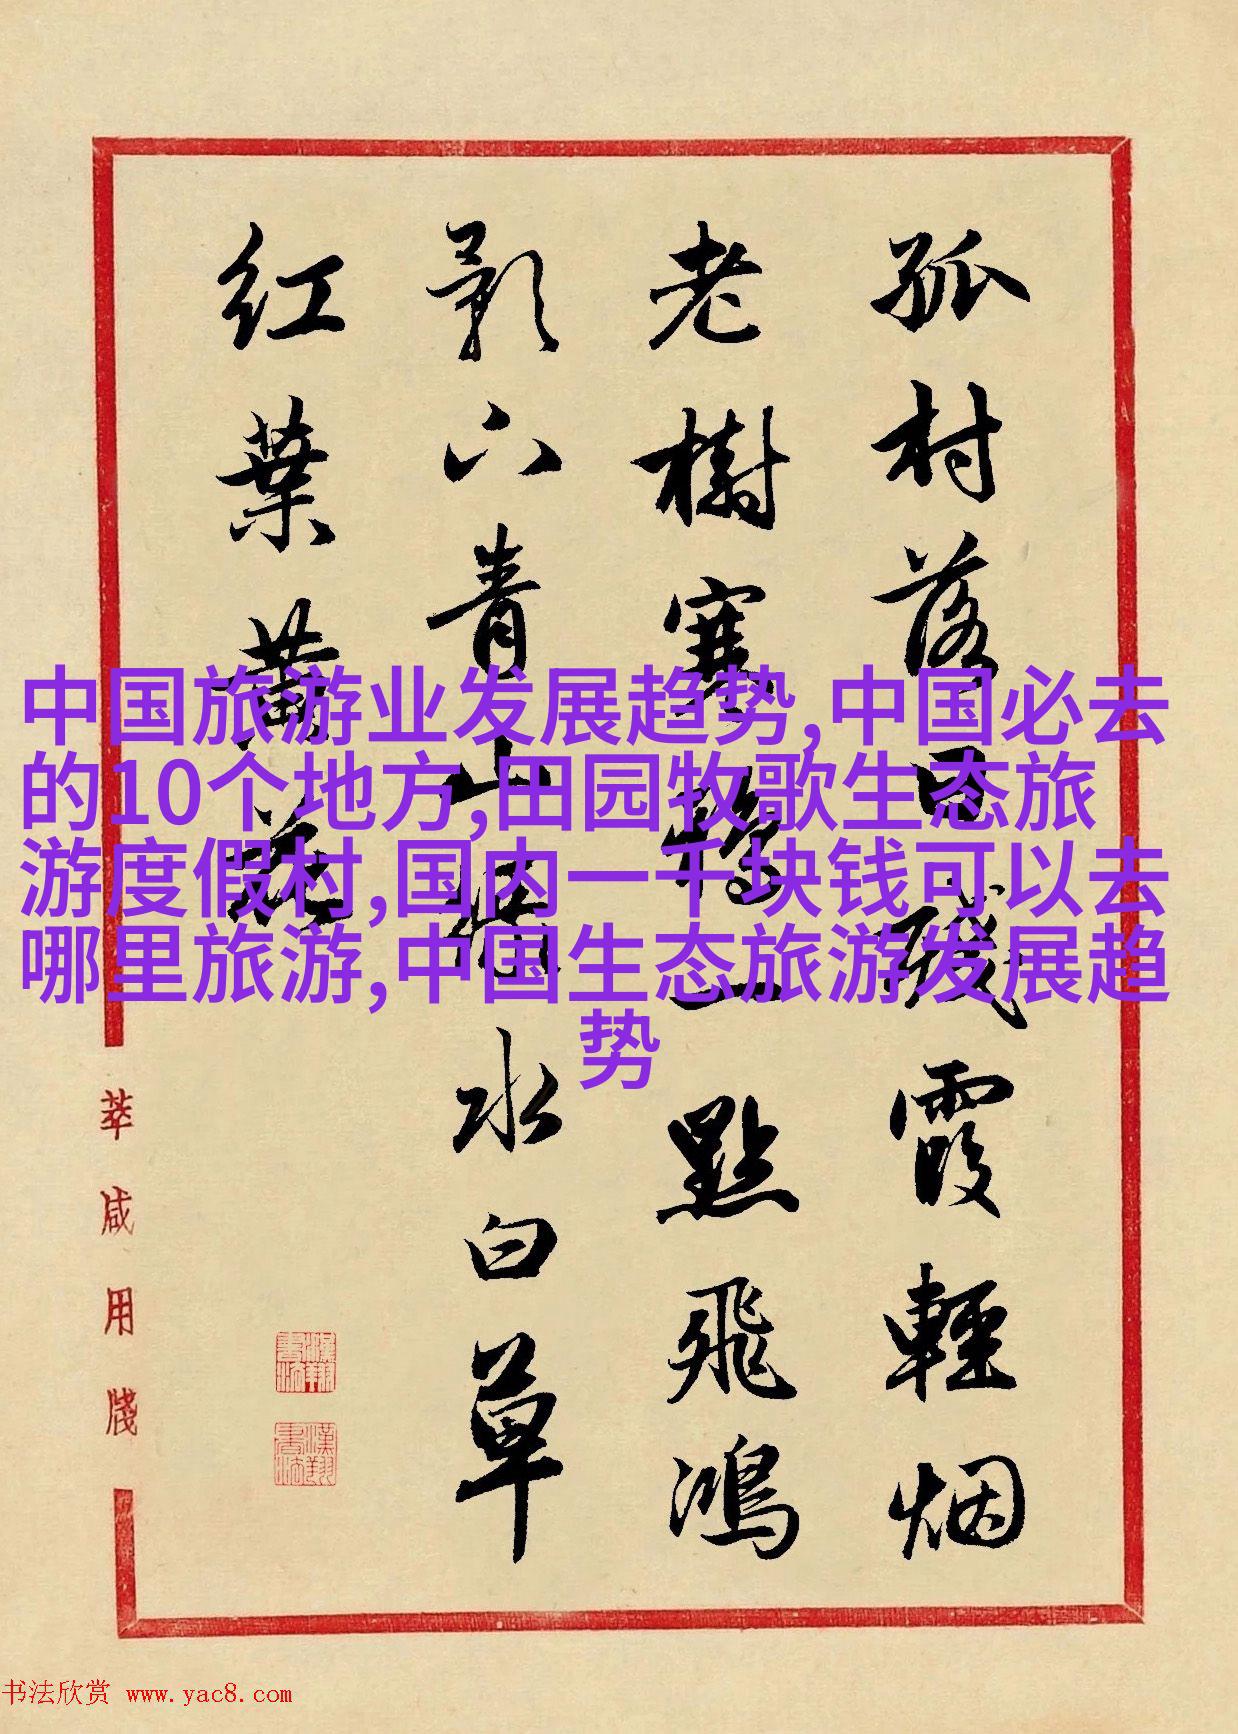 孤村落日残霞輕烟
老樹寒鴉一點飛鴻
影下青山緑水白草
红葉黄花
中国旅游业发展趋势,中国必去
的10个地方,田园牧歌生态旅
游度假村,国内一千块钱可以去
哪里旅游,中国生态旅游发展趋
势
用牋
漢翔書法
漢翔書法
书法欣赏 www.yac8.com